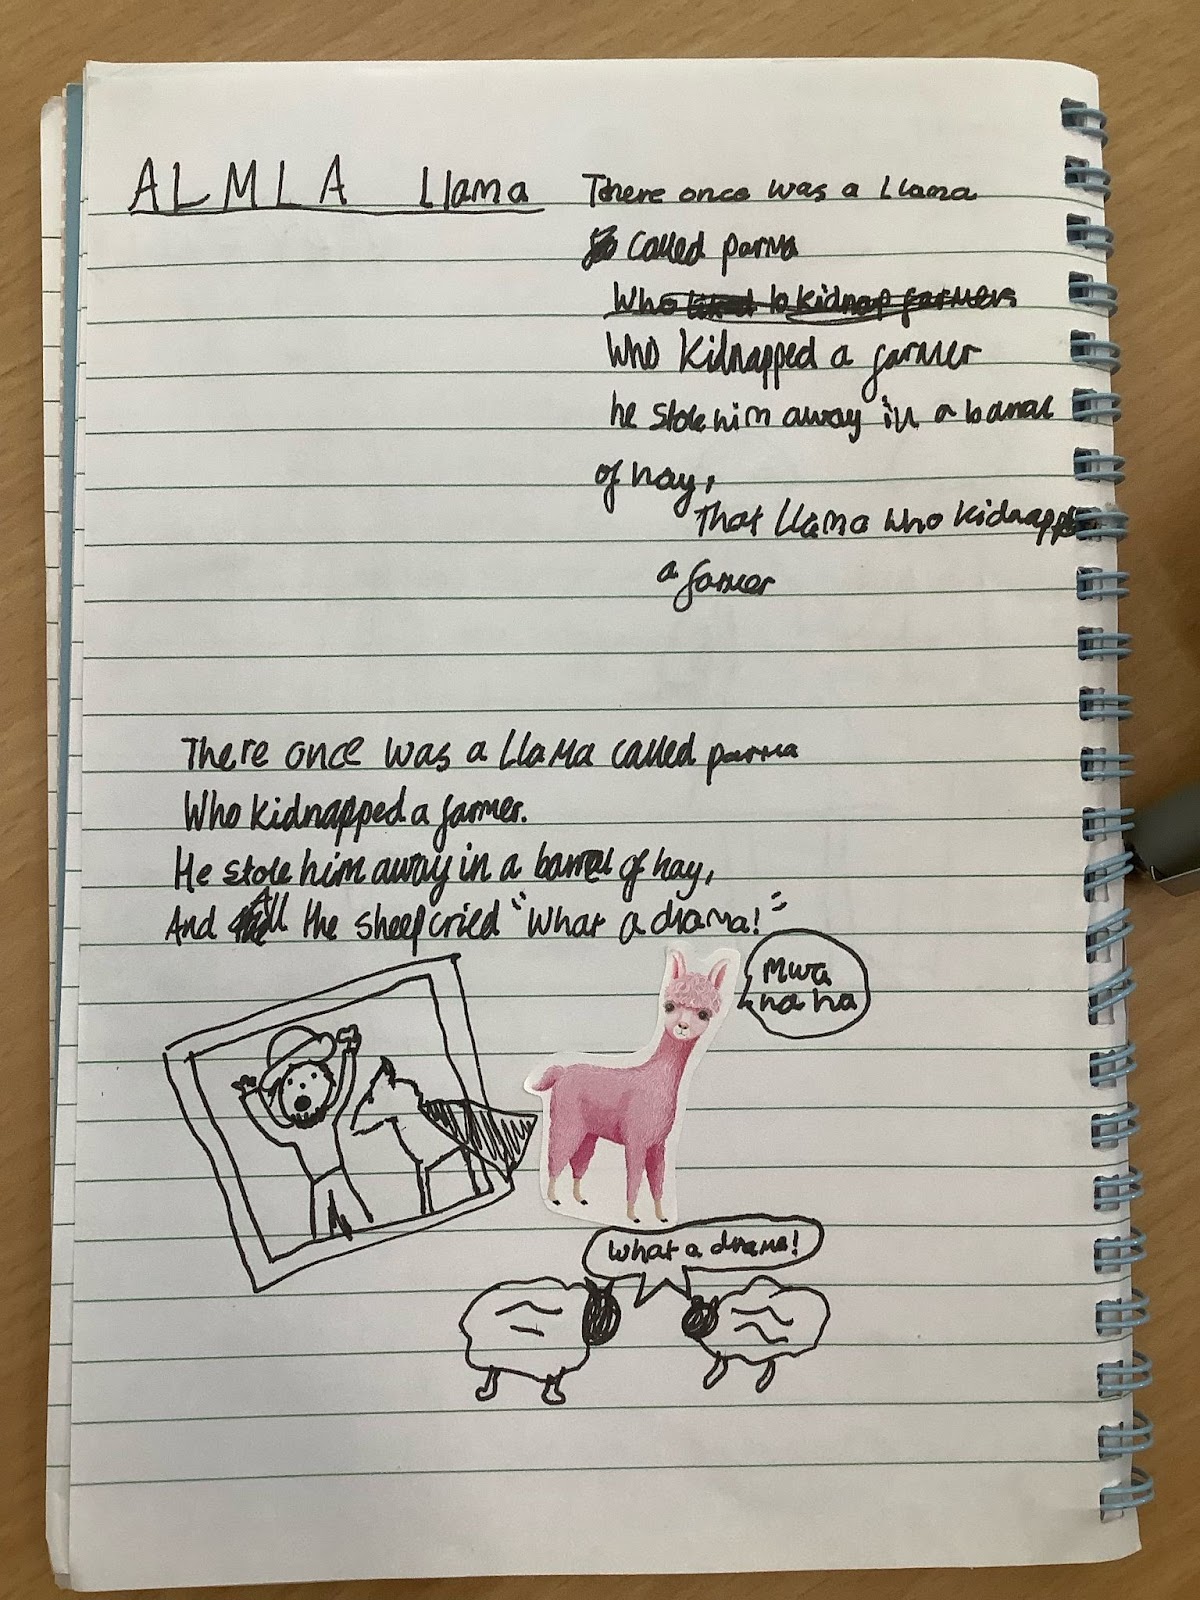 ALMLA Llama
There once was a Llama
called parma
Who liked to kidnap farmers
Who kidnapped a farmer
he stole him away in a barral
of hay,
That Llama who kidnapp
a farmer
There once was a Llama called parma
Who kidnapped a farmer.
He stole him away in a barrel of hay,
And All the sheep cried "What a drama!"
Mwa
ha ha
What a drama!